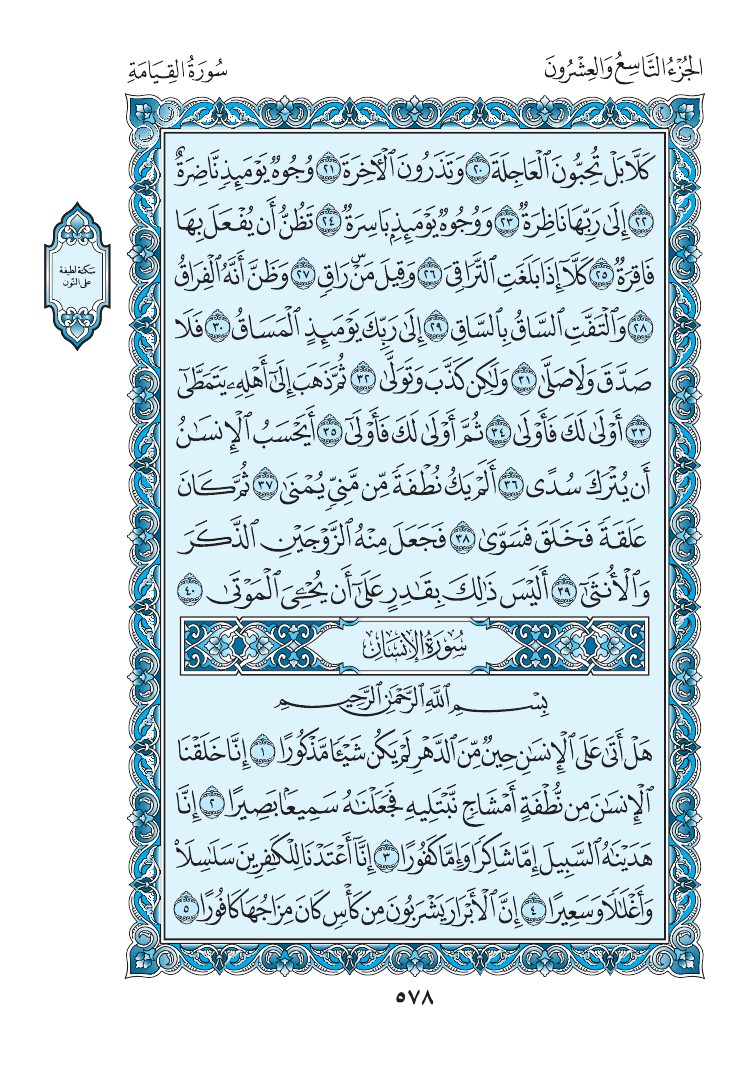 الجُزْءُ التَّاسِعُ وَالعِشْرُونَ
سُورَةُ القِيَامَةِ
كَلَّا بَلْ تُحِبُّونَ ٱلْعَاجِلَةَ ٢٠ وَتَذَرُونَ ٱلْأٓخِرَةَ ٢١ وُجُوهٌ يَوْمَئِذٍ نَّاضِرَةٌ
٢٢ إِلَىٰ رَبِّهَا نَاظِرَةٌ ٢٣ وَوُجُوهٌ يَوْمَئِذٍۭ بَاسِرَةٌ ٢٤ تَظُنُّ أَن يُفْعَلَ بِهَا
فَاقِرَةٌ ٢٥ كَلَّآ إِذَا بَلَغَتِ ٱلتَّرَاقِىَ ٢٦ وَقِيلَ مَنْۜ رَاقٍ ٢٧ وَظَنَّ أَنَّهُ ٱلْفِرَاقُ
٢٨ وَٱلْتَفَّتِ ٱلسَّاقُ بِٱلسَّاقِ ٢٩ إِلَىٰ رَبِّكَ يَوْمَئِذٍ ٱلْمَسَاقُ ٣٠ فَلَا
صَدَّقَ وَلَا صَلَّىٰ ٣١ وَلَٰكِن كَذَّبَ وَتَوَلَّىٰ ٣٢ ثُمَّ ذَهَبَ إِلَىٰٓ أَهْلِهِۦ يَتَمَطَّىٰٓ
٣٣ أَوْلَىٰ لَكَ فَأَوْلَىٰ ٣٤ ثُمَّ أَوْلَىٰ لَكَ فَأَوْلَىٰٓ ٣٥ أَيَحْسَبُ ٱلْإِنسَٰنُ
أَن يُتْرَكَ سُدًى ٣٦ أَلَمْ يَكُ نُطْفَةً مِّن مَّنِىٍّ يُمْنَىٰ ٣٧ ثُمَّ كَانَ
عَلَقَةً فَخَلَقَ فَسَوَّىٰ ٣٨ فَجَعَلَ مِنْهُ ٱلزَّوْجَيْنِ ٱلذَّكَرَ
وَٱلْأُنثَىٰٓ ٣٩ أَلَيْسَ ذَٰلِكَ بِقَٰدِرٍ عَلَىٰٓ أَن يُحْۦِىَ ٱلْمَوْتَىٰ ٤٠
سُورَةُ الإِنسَانِ
بِسْمِ ٱللَّهِ ٱلرَّحْمَٰنِ ٱلرَّحِيمِ
هَلْ أَتَىٰ عَلَى ٱلْإِنسَٰنِ حِينٌ مِّنَ ٱلدَّهْرِ لَمْ يَكُن شَيْـًٔا مَّذْكُورًا ١ إِنَّا خَلَقْنَا
ٱلْإِنسَٰنَ مِن نُّطْفَةٍ أَمْشَاجٍ نَّبْتَلِيهِ فَجَعَلْنَٰهُ سَمِيعًۢا بَصِيرًا ٢ إِنَّا
هَدَيْنَٰهُ ٱلسَّبِيلَ إِمَّا شَاكِرًا وَإِمَّا كَفُورًا ٣ إِنَّآ أَعْتَدْنَا لِلْكَٰفِرِينَ سَلَٰسِلَا۟
وَأَغْلَٰلًا وَسَعِيرًا ٤ إِنَّ ٱلْأَبْرَارَ يَشْرَبُونَ مِن كَأْسٍ كَانَ مِزَاجُهَا كَافُورًا ٥
سكتة لطيفة
على النّون
٥٧٨